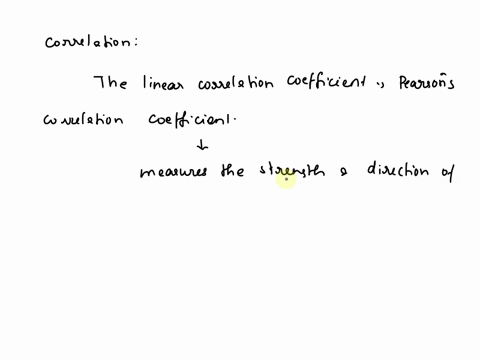 Correlation:
The linear correlation coefficient, Pearson's
correlation coefficient.
↓
measures the strength & direction of